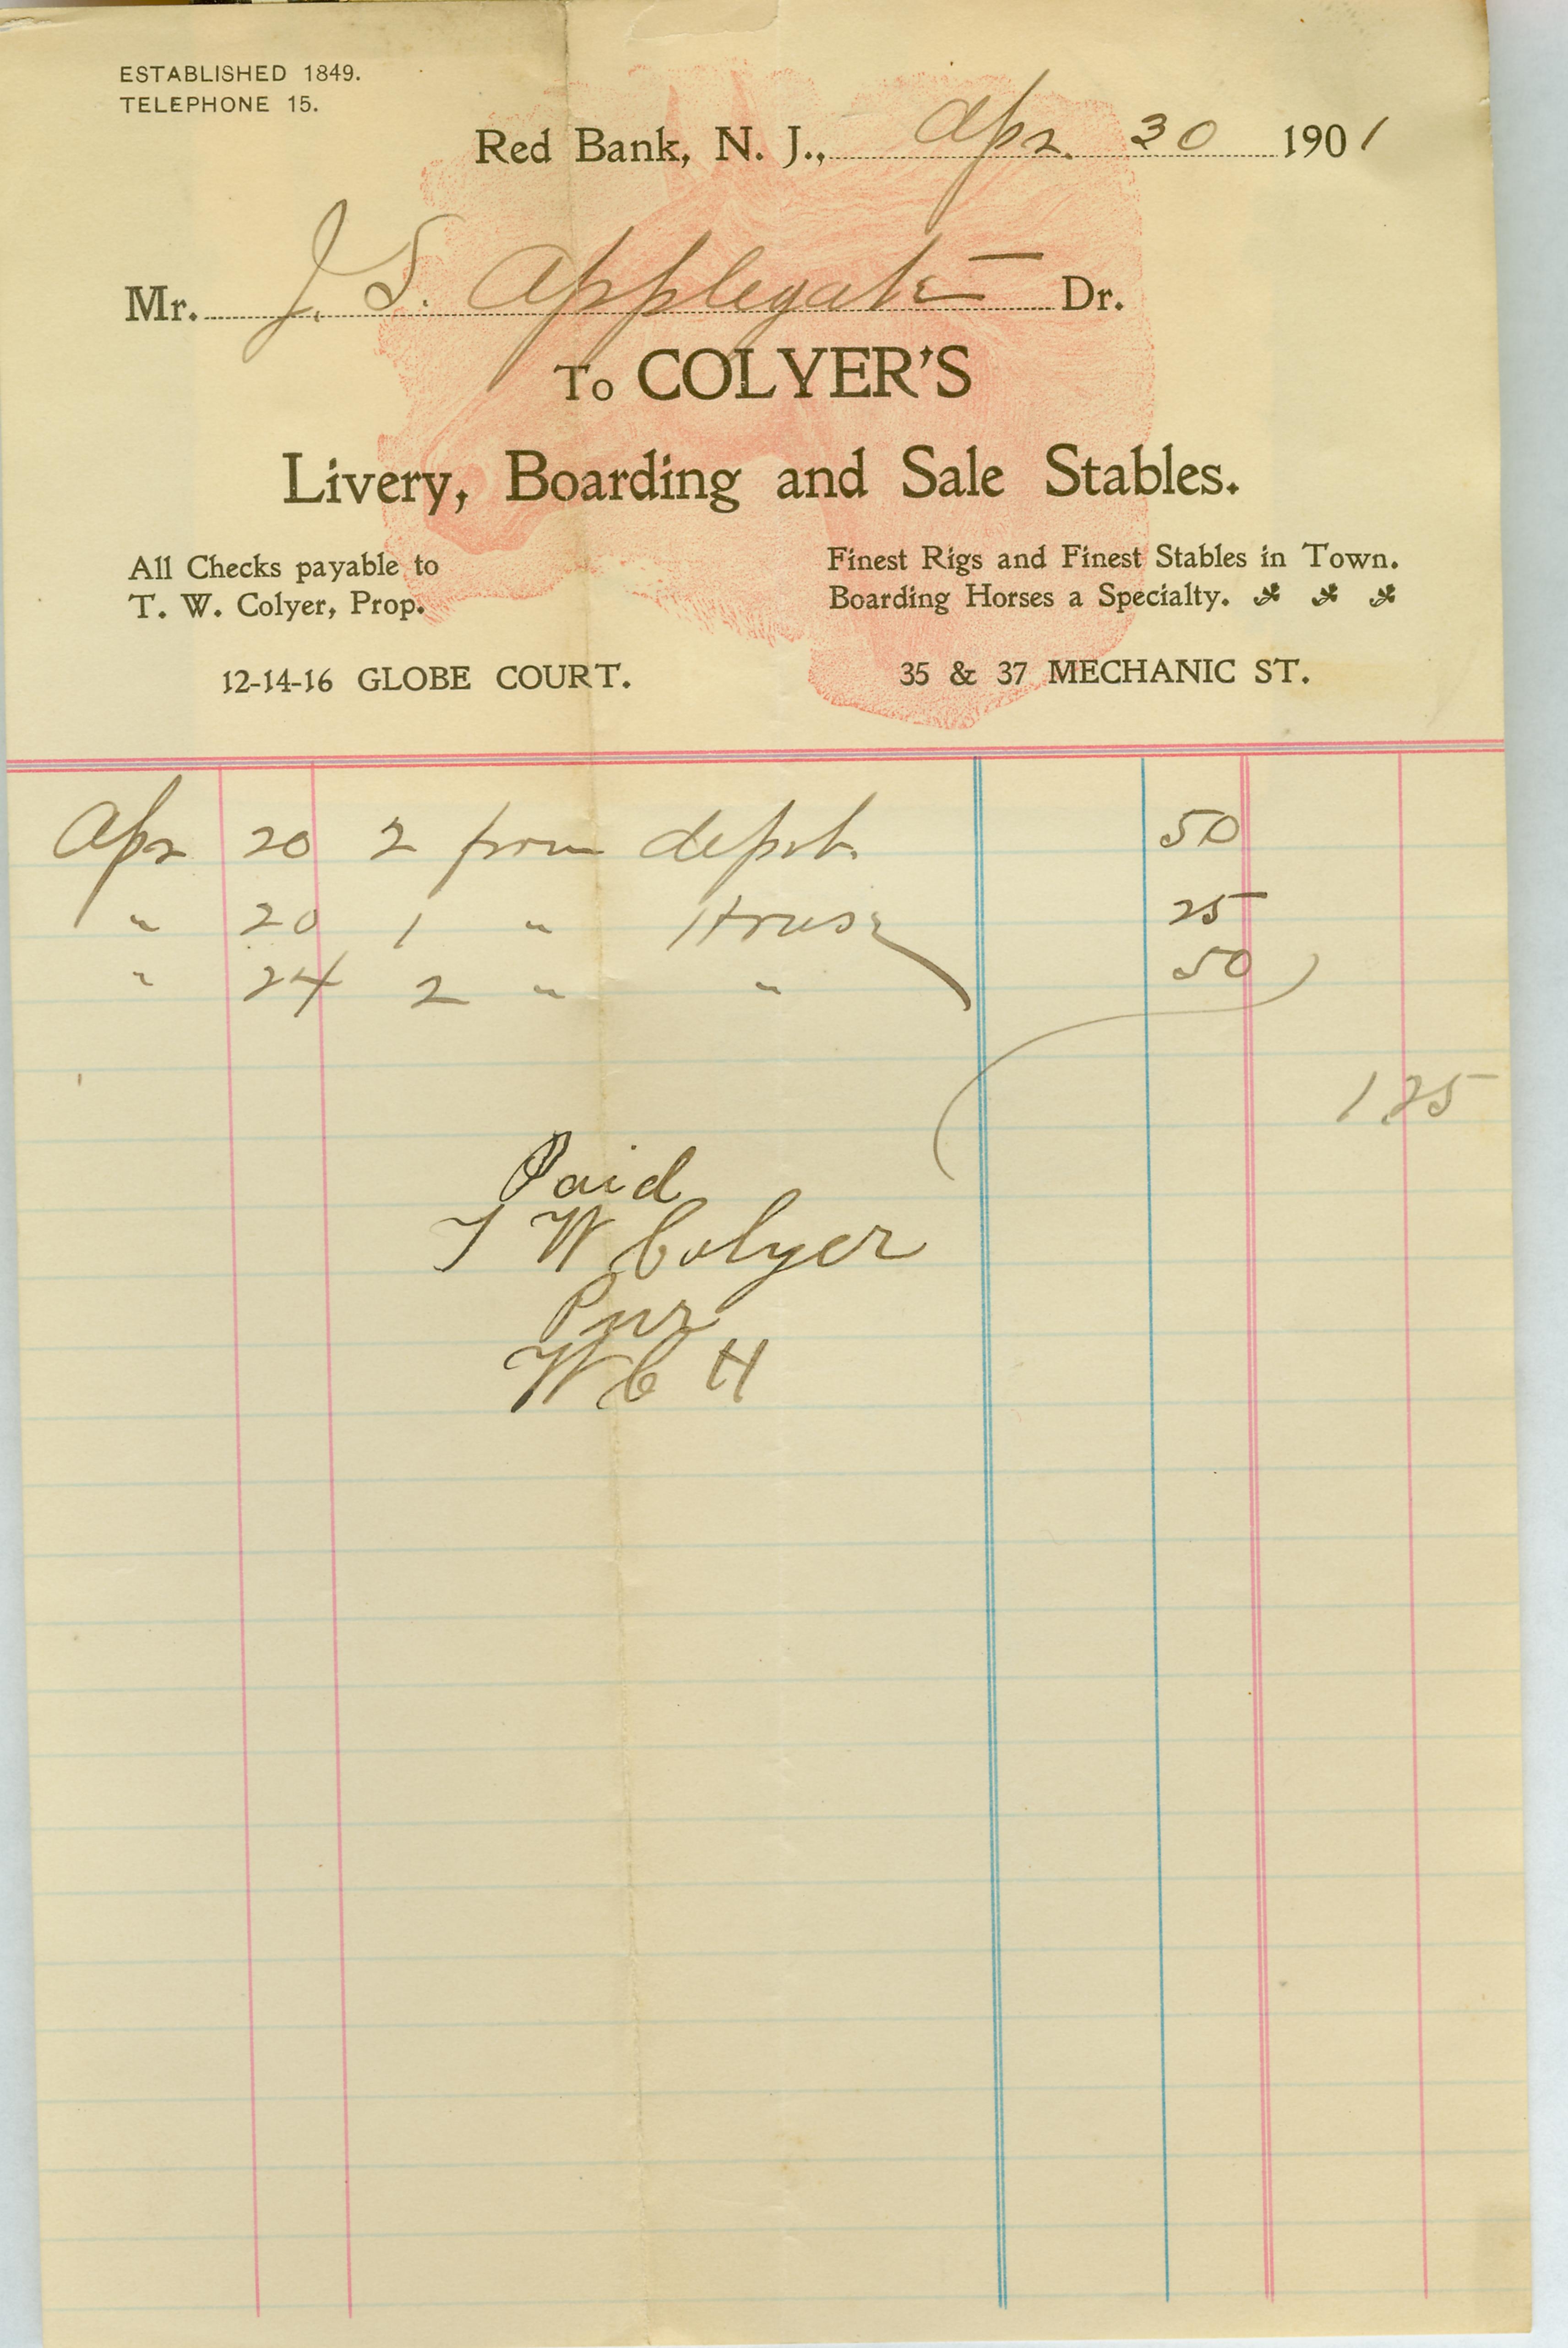 ESTABLISHED 1849.
TELEPHONE 15.
Red Bank, N. J., Apr. 30 1901
Mr. J. S. Applegate Dr.
To COLYER'S
Livery, Boarding and Sale Stables.
All Checks payable to
T. W. Colyer, Prop.
Finest Rigs and Finest Stables in Town.
Boarding Horses a Specialty.
12-14-16 GLOBE COURT.
35 & 37 MECHANIC ST.
Apr 20 2 from depot. 50
" 20 1 " House 25
" 24 2 " " 50
1.25
Paid
T W Colyer
Per
W C H